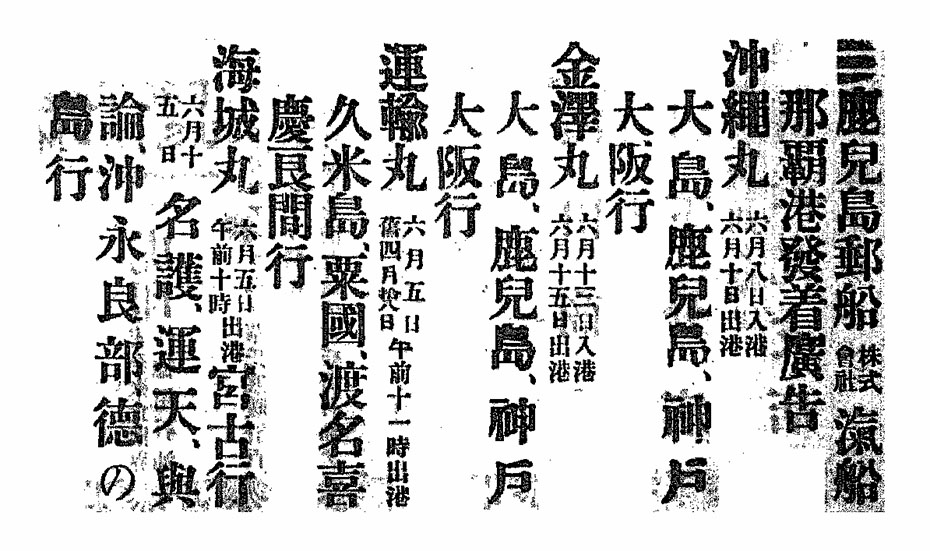 鹿兒島郵船株式會社滊船
那覇港發着廣告
沖繩丸 六月八日入港 六月十日出港
大島、鹿兒島、神戶
大阪行
金澤丸 六月十三日入港 六月十五日出港
大島、鹿兒島、神戶
大阪行
運輸丸 六月五日 舊四月拾八日 午前十一時出港
久米島、粟國、渡名喜
慶良間行
海城丸 六月五日 午前十時 出港 宮古行
六月十五日 名護、運天、與
論、沖永良部、德の
島行